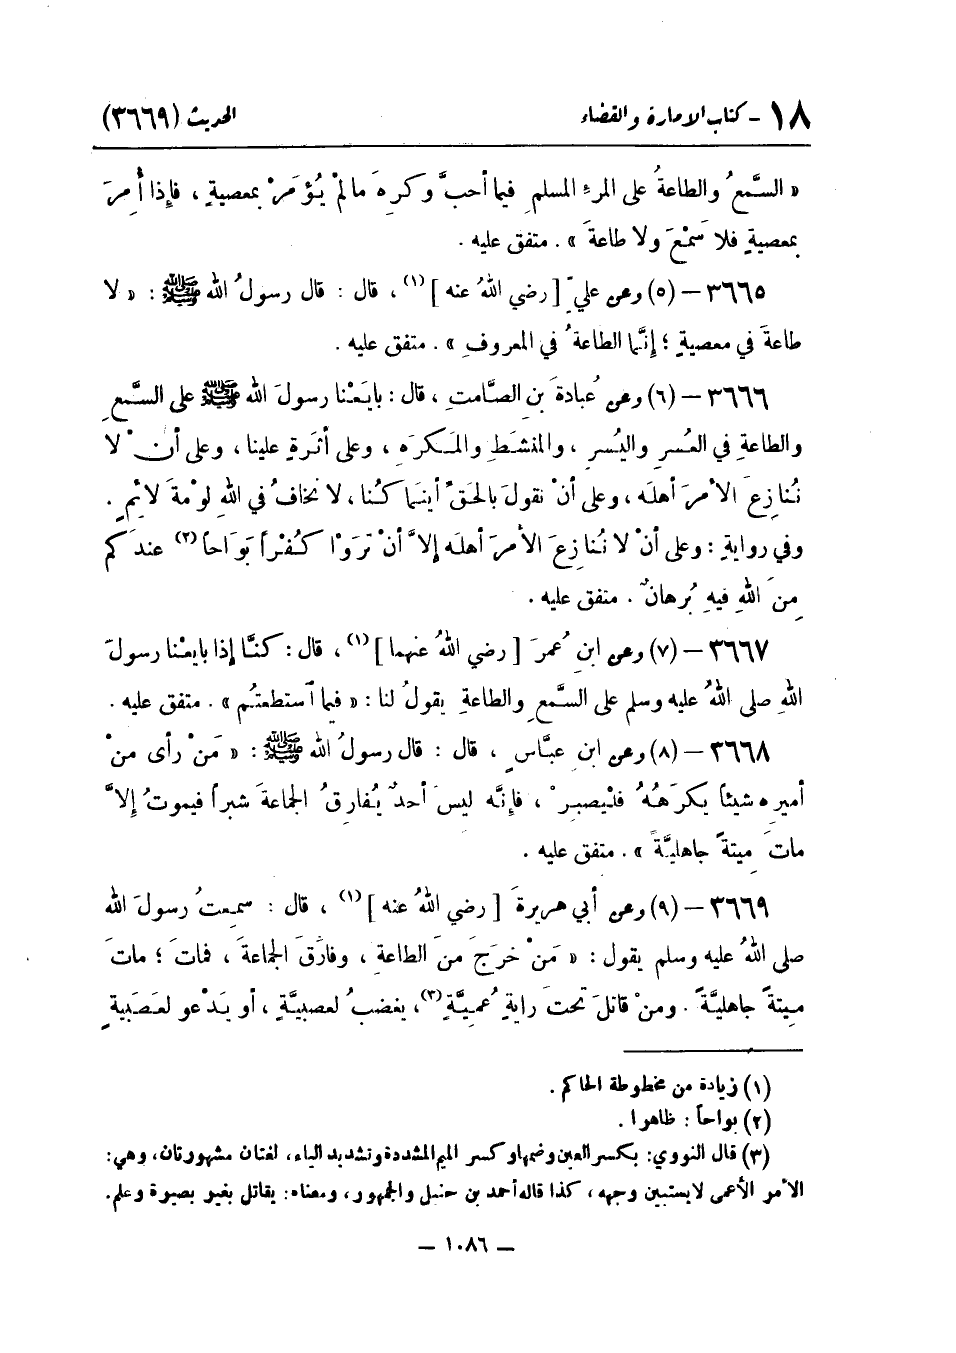 ١٨ - كتاب الامارة والقضاء    الحديث (٣٦٦٩)
« السَّمعُ والطاعةُ على المرءِ المسلمِ فيما أحبَّ وكرِهَ مالمْ يُؤمَرْ بمعصيةٍ ، فإِذا أُمِرَ
بمعصيةٍ فلا سَمْعَ ولا طاعةَ » . متفق عليه .
٣٦٦٥ – (٥) وعن عليٍّ [ رضي اللهُ عنه ](١) ، قال : قال رسولُ الله ﷺ : « لا
طاعةَ في معصيةٍ ؛ إِنَّما الطاعةُ في المعروفِ » . متفق عليه .
٣٦٦٦ – (٦) وعن عُبادةَ بنِ الصَّامتِ ، قال : بايَعْنا رسولَ الله ﷺ على السَّمعِ
والطاعةِ في العُسرِ واليُسرِ ، والمنشَطِ والمَكرَهِ ، وعلى أثَرةٍ علينا ، وعلى أنْ لا
نُنازِعَ الأمرَ أهلَه ، وعلى أنْ نقولَ بالحَقِّ أينَما كُنا ، لا نخافُ في اللهِ لوْمةَ لائِمٍ .
وفي روايةٍ : وعلى أنْ لا نُنازِعَ الأمرَ أهلَه إلاَّ أنْ تَرَوْا كُفْراً بَوَاحاً(٢) عندَكم
مِنَ اللهِ فيهِ بُرهانٌ . متفق عليه .
٣٦٦٧ – (٧) وعن ابنِ عُمرَ [ رضي اللهُ عنهما ](١) ، قال : كنَّا إذا بايعْنا رسولَ
اللهِ صلى اللهُ عليه وسلم على السَّمعِ والطاعةِ يقولُ لنا : « فيما ٱستطعتُم » . متفق عليه .
٣٦٦٨ – (٨) وعن ابنِ عبَّاسٍ ، قال : قال رسولُ الله ﷺ : « مَنْ رأى منْ
أميرِه شيئاً يكرَهُهُ فليْصبِرْ ، فإِنَّه ليسَ أحدٌ يُفارِقُ الجماعةَ شبراً فيموتُ إلاَّ
ماتَ مِيتةً جاهليَّةً » . متفق عليه .
٣٦٦٩ – (٩) وعن أبي هريرةَ [ رضي اللهُ عنه ](١) ، قال : سمِعتُ رسولَ الله
صلى اللهُ عليه وسلم يقول : « مَنْ خرَجَ منَ الطاعةِ ، وفارَقَ الجماعةَ ، فماتَ ؛ ماتَ
مِيتةً جاهليَّةً . ومنْ قاتلَ تحتَ رايةٍ عُمِيَّةٍ(٣)، يغضبُ لعصبيَّةٍ ، أو يَدْعو لعَصَبيةٍ
(١) زيادة من مخطوطة الحاكم .
(٢) بواحاً : ظاهرا .
(٣) قال النووي : بكسر العين وضمها وكسر الميم المشددة وتشديد الياء ، لغتان مشهورتان ، وهي :
الأمر الأعمى لا يستبين وجهه ، كذا قاله أحمد بن حنبل والجمهور ، ومعناه : يقاتل بغير بصيرة وعلم .
– ١٠٨٦ –